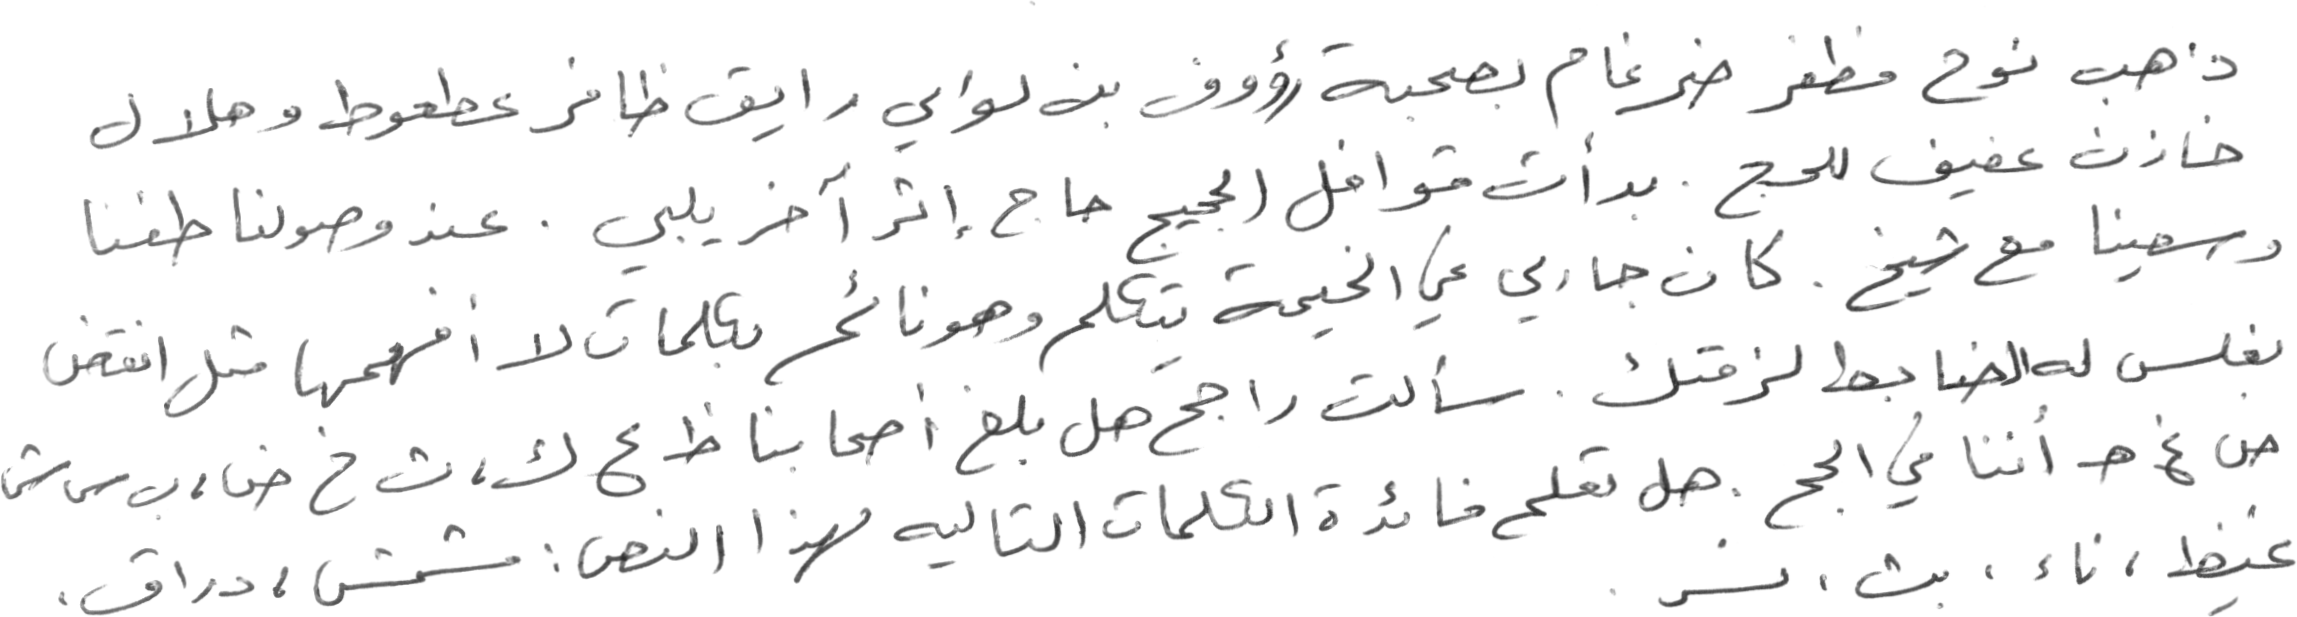 ذهب نوح مظفر ضرغام بصحبة رؤوف بن لؤي رايق ظافر عطعوط وهلال
خازن عفيف للحج . بدأت قوافل الحجيج حاج إثر آخر يلبي . عند وصولنا طفنا
وسعينا مع شيخ . كان جاري في الخيمة يتكلم وهو نائم بكلمات لا أفهمها مثل انقض
بفلس له الضابط لزقتك . سألت راجح هل بلغ أصحابنا ظ ع ك ، ث خ ض ، ب س ش
ص غ هـ أننا في الحج . هل تعلم فائدة الكلمات التاليه لهذا النص : مشمش ، دراق ،
غيظ ، ناء ، بث ، نسر .